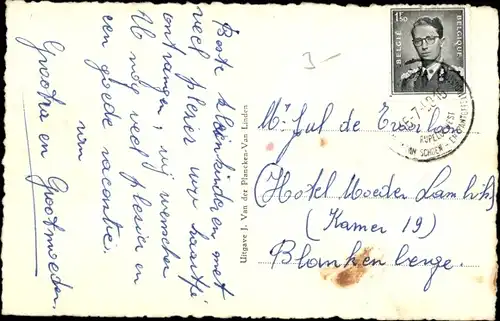 Beste kleinkinderen met
veel plezier uw kaartje
ontvangen, wij wenschen
U nog veel plezier en
een goede vacantie.
van
Grootpa en Grootmoeder.
Uitgave J. Van der Plancken-Van Linden
3-
1F50
BELGIË BELGIQUE
Mr Jul de
(Hotel Moeder Lambik)
(Kamer 19)
Blankenberge.